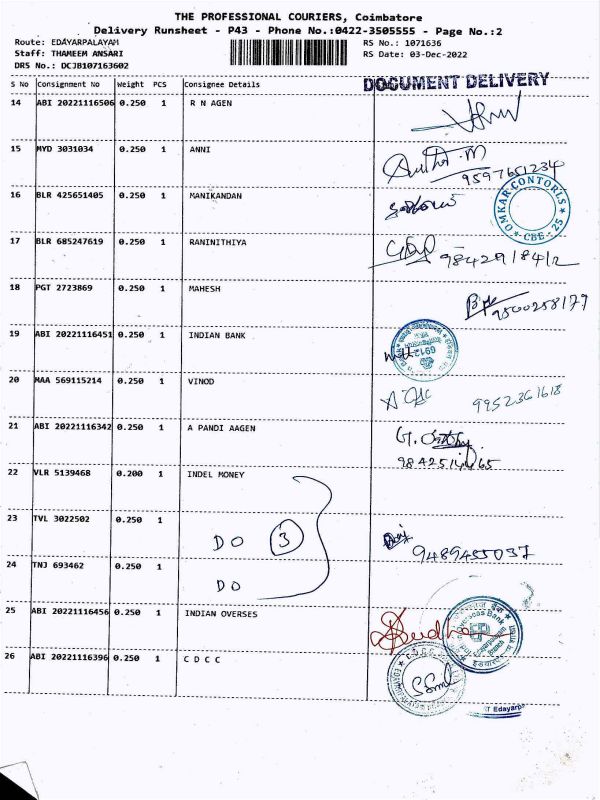 THE PROFESSIONAL COURIERS, Coimbatore
Delivery Runsheet - P43 - Phone No.:0422-3505555 - Page No.:2
Route: EDAYARPALAYAM
RS No.: 1071636
Staff: THAMEEM ANSARI
RS Date: 03-Dec-2022
DRS No.: DCJB107163602
S No Consignment No Weight PCS Consignee Details
DOCUMENT DELIVERY
14 ABI 20221116506 0.250 1 R N AGEN
15 MYD 3031034 0.250 1 ANNI
9597651234
16 BLR 425651405 0.250 1 MANIKANDAN
OMKAR CONTORLS
CBE - 25
17 BLR 685247619 0.250 1 RANINITHIYA
9842918412
18 PGT 2723869 0.250 1 MAHESH
9500258179
19 ABI 20221116451 0.250 1 INDIAN BANK
20 MAA 569115214 0.250 1 VINOD
9952361618
21 ABI 20221116342 0.250 1 A PANDI AAGEN
22 VLR 5139468 0.200 1 INDEL MONEY
23 TVL 3022502 0.250 1
DO 3
9489455037
24 TNJ 693462 0.250 1
DO
25 ABI 20221116456 0.250 1 INDIAN OVERSES
26 ABI 20221116396 0.250 1 C D C C